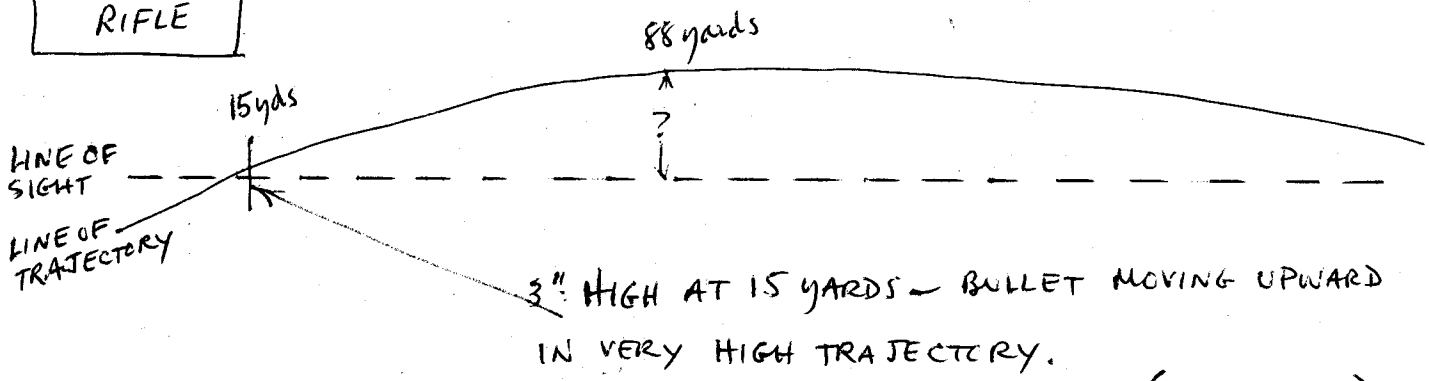 RIFLE
88 yards
15 yds
?
LINE OF
SIGHT
LINE OF
TRAJECTORY
3" HIGH AT 15 YARDS - BULLET MOVING UPWARD
IN VERY HIGH TRAJECTORY.